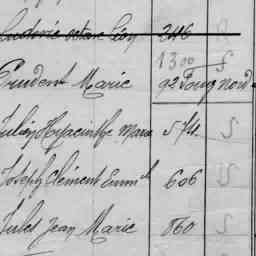 Ludovic octave Léon 346
1300 S
Prudent Marie 92 Poug Nord
Julien Hyacinthe Marie 574 S
Joseph Clément Emm el 606 S
Jules Jean Marie 860 S